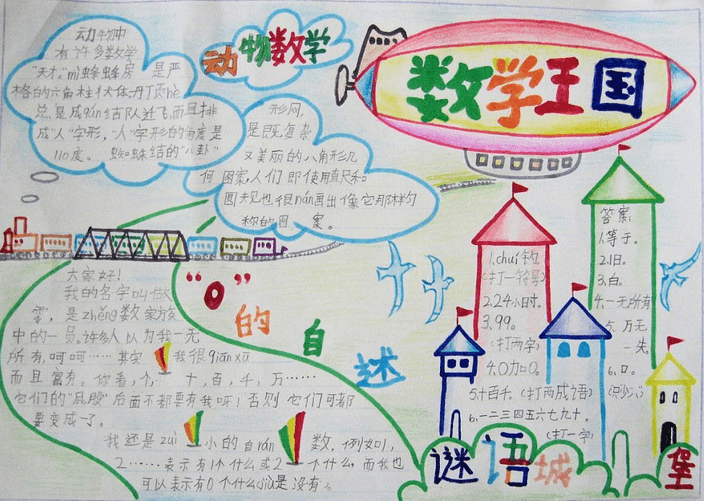 数学王国
动物数学
动物中
有许多数学
“天才”mì蜂蜂房 是严
格的六角柱状体丹顶hè
总是成qún结队迁飞,而且排
成“人”字形,“人”字形的角度是
110度。 蜘蛛结的“八卦”
形网,
是既复杂
又美丽的八角形几
何图案,人们即使用直尺和
圆规也很nán画出像它那样匀
称的图案。
“0”的自述
大家好!
我的名字叫做
零,是zhěng数家族
中的一员。许多人以为我一无
所有,呵呵……其实 我很qiān xū
而且富有。你看,个、十,百,千,万……
它们的“屁股”后面不都要有我呀!否则它们可都
要变成一了。
我还是zuì小的自rán数,例如1,
2……表示有1个什么或2个什么,而我也
可以表示有0个什么jiù是没有。
1.chuí钩
(打一符号)
2.24小时。
3.99。
(打两字)
4.0加0。
5.十百千。(打两成语)
6.一二三四五六七九十。
(打一字)
答案:
1.等于。
2.旧。
3.白。
4.一无所有
5.万无
一失。
6.口。
(只少八)
谜语城堡